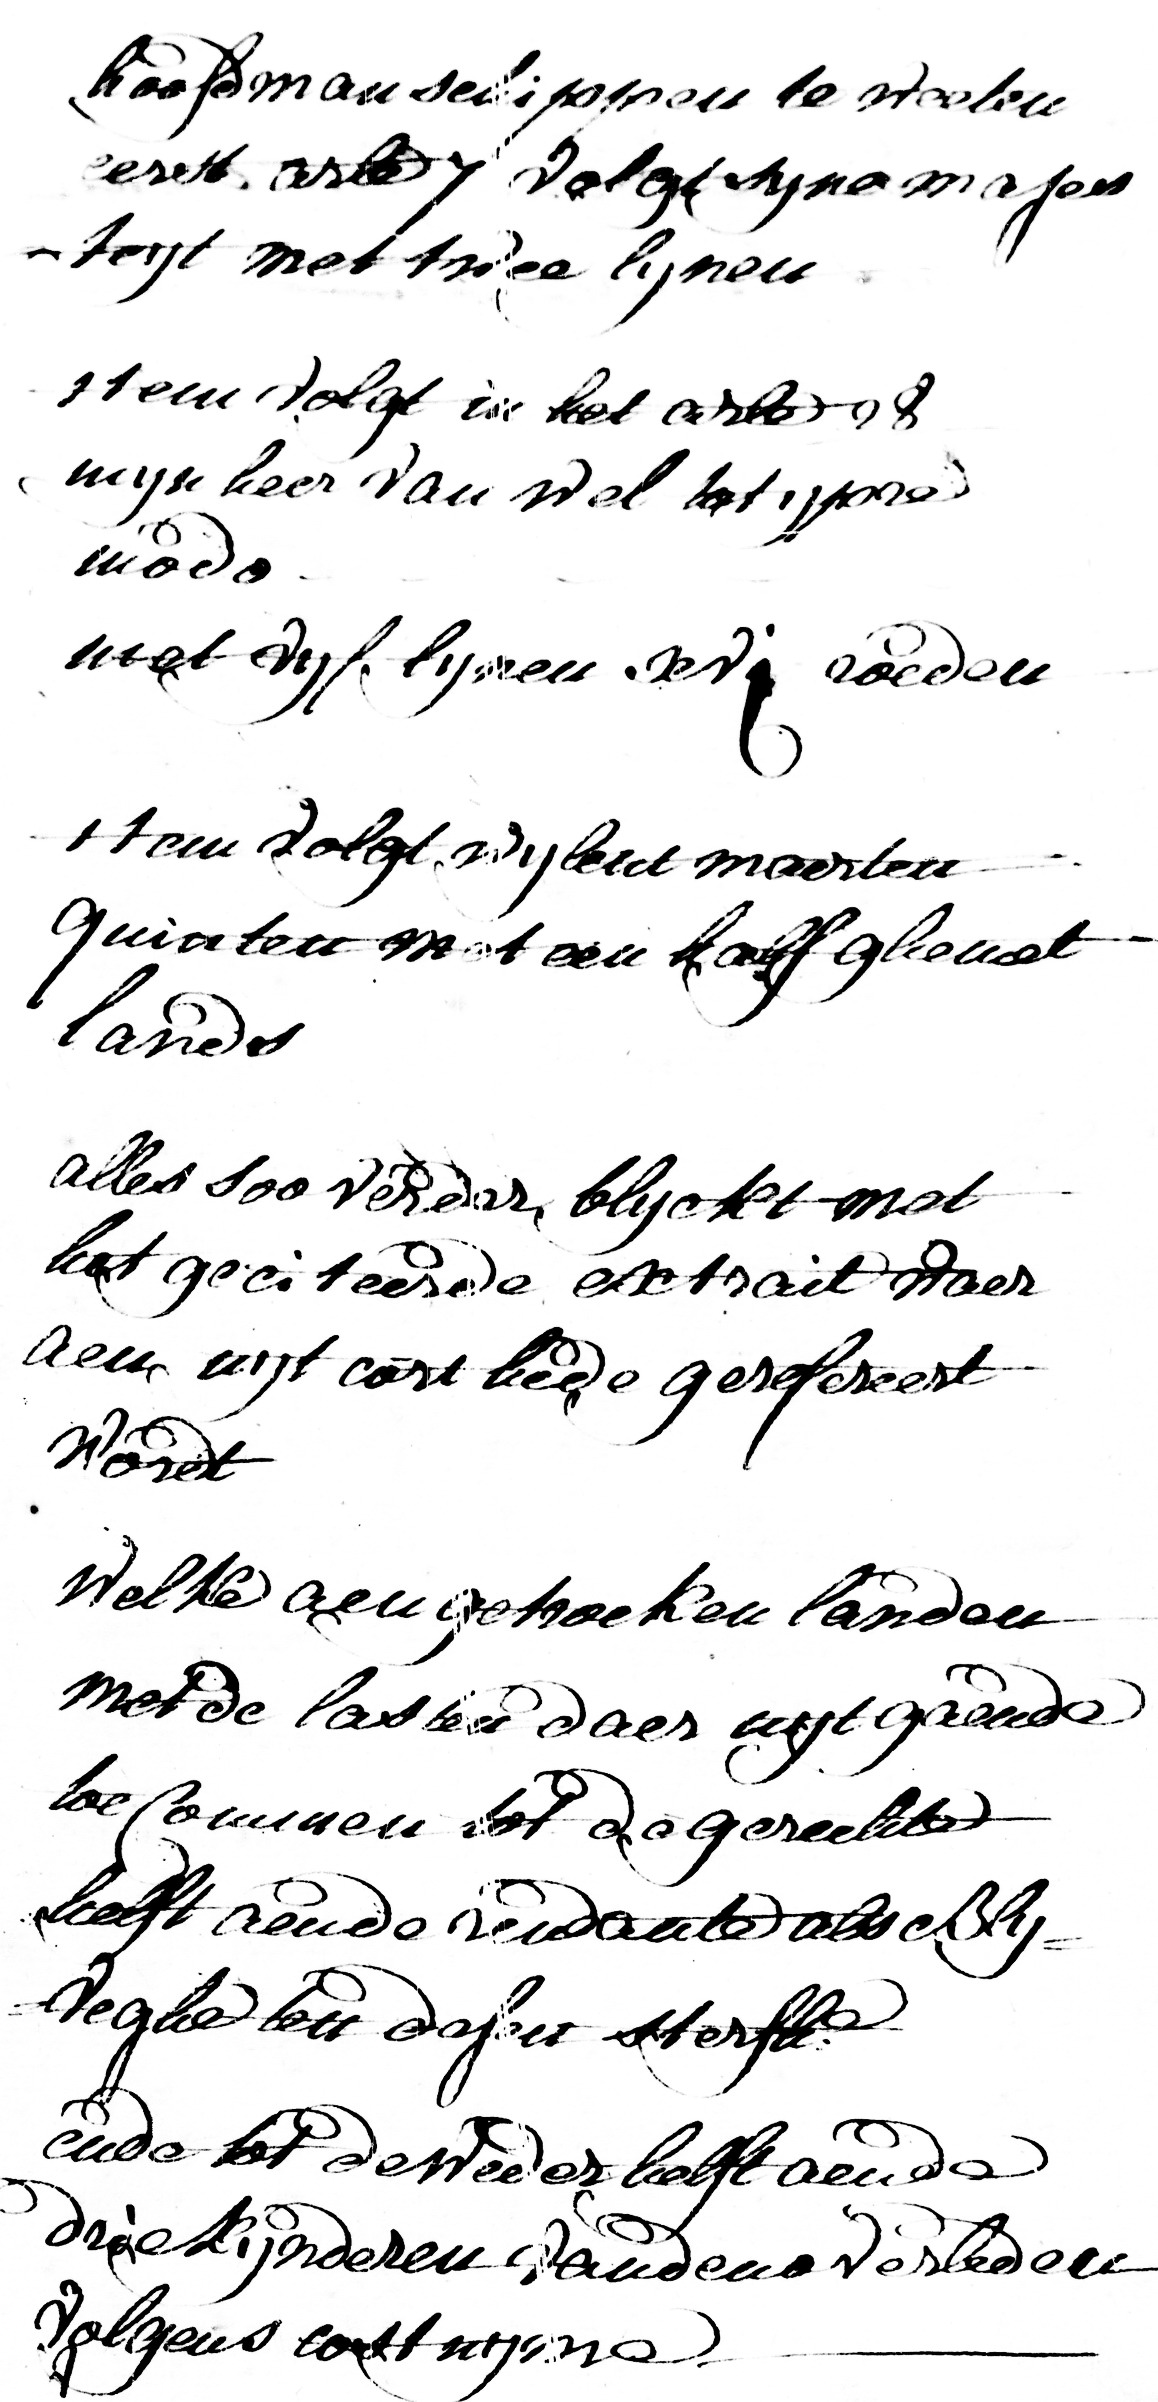 hoofdmanschippen te weeten
eerst. arle 7 volgt syne majes
-teyt met twee lynen
item volgt in het arle 98
mijn heer van wel tot ypre
modo
met vyf lynen xvj roeden
item volgt wylent maerten
quinten met een half ghemet
lands
alles soo verder blyckt met
het geciteerde extrait waer
aen uyt cort hede gerefereert
wordt
welke aengetrocken landen
met de lasten daer uyt gaende
toecommen tot de gerechte
helft aende rendante als Bly=
=veghe ten desen sterfhe
ende tot de weder helft aende
drie kijnderen vandeno verleden
volgens costuyme